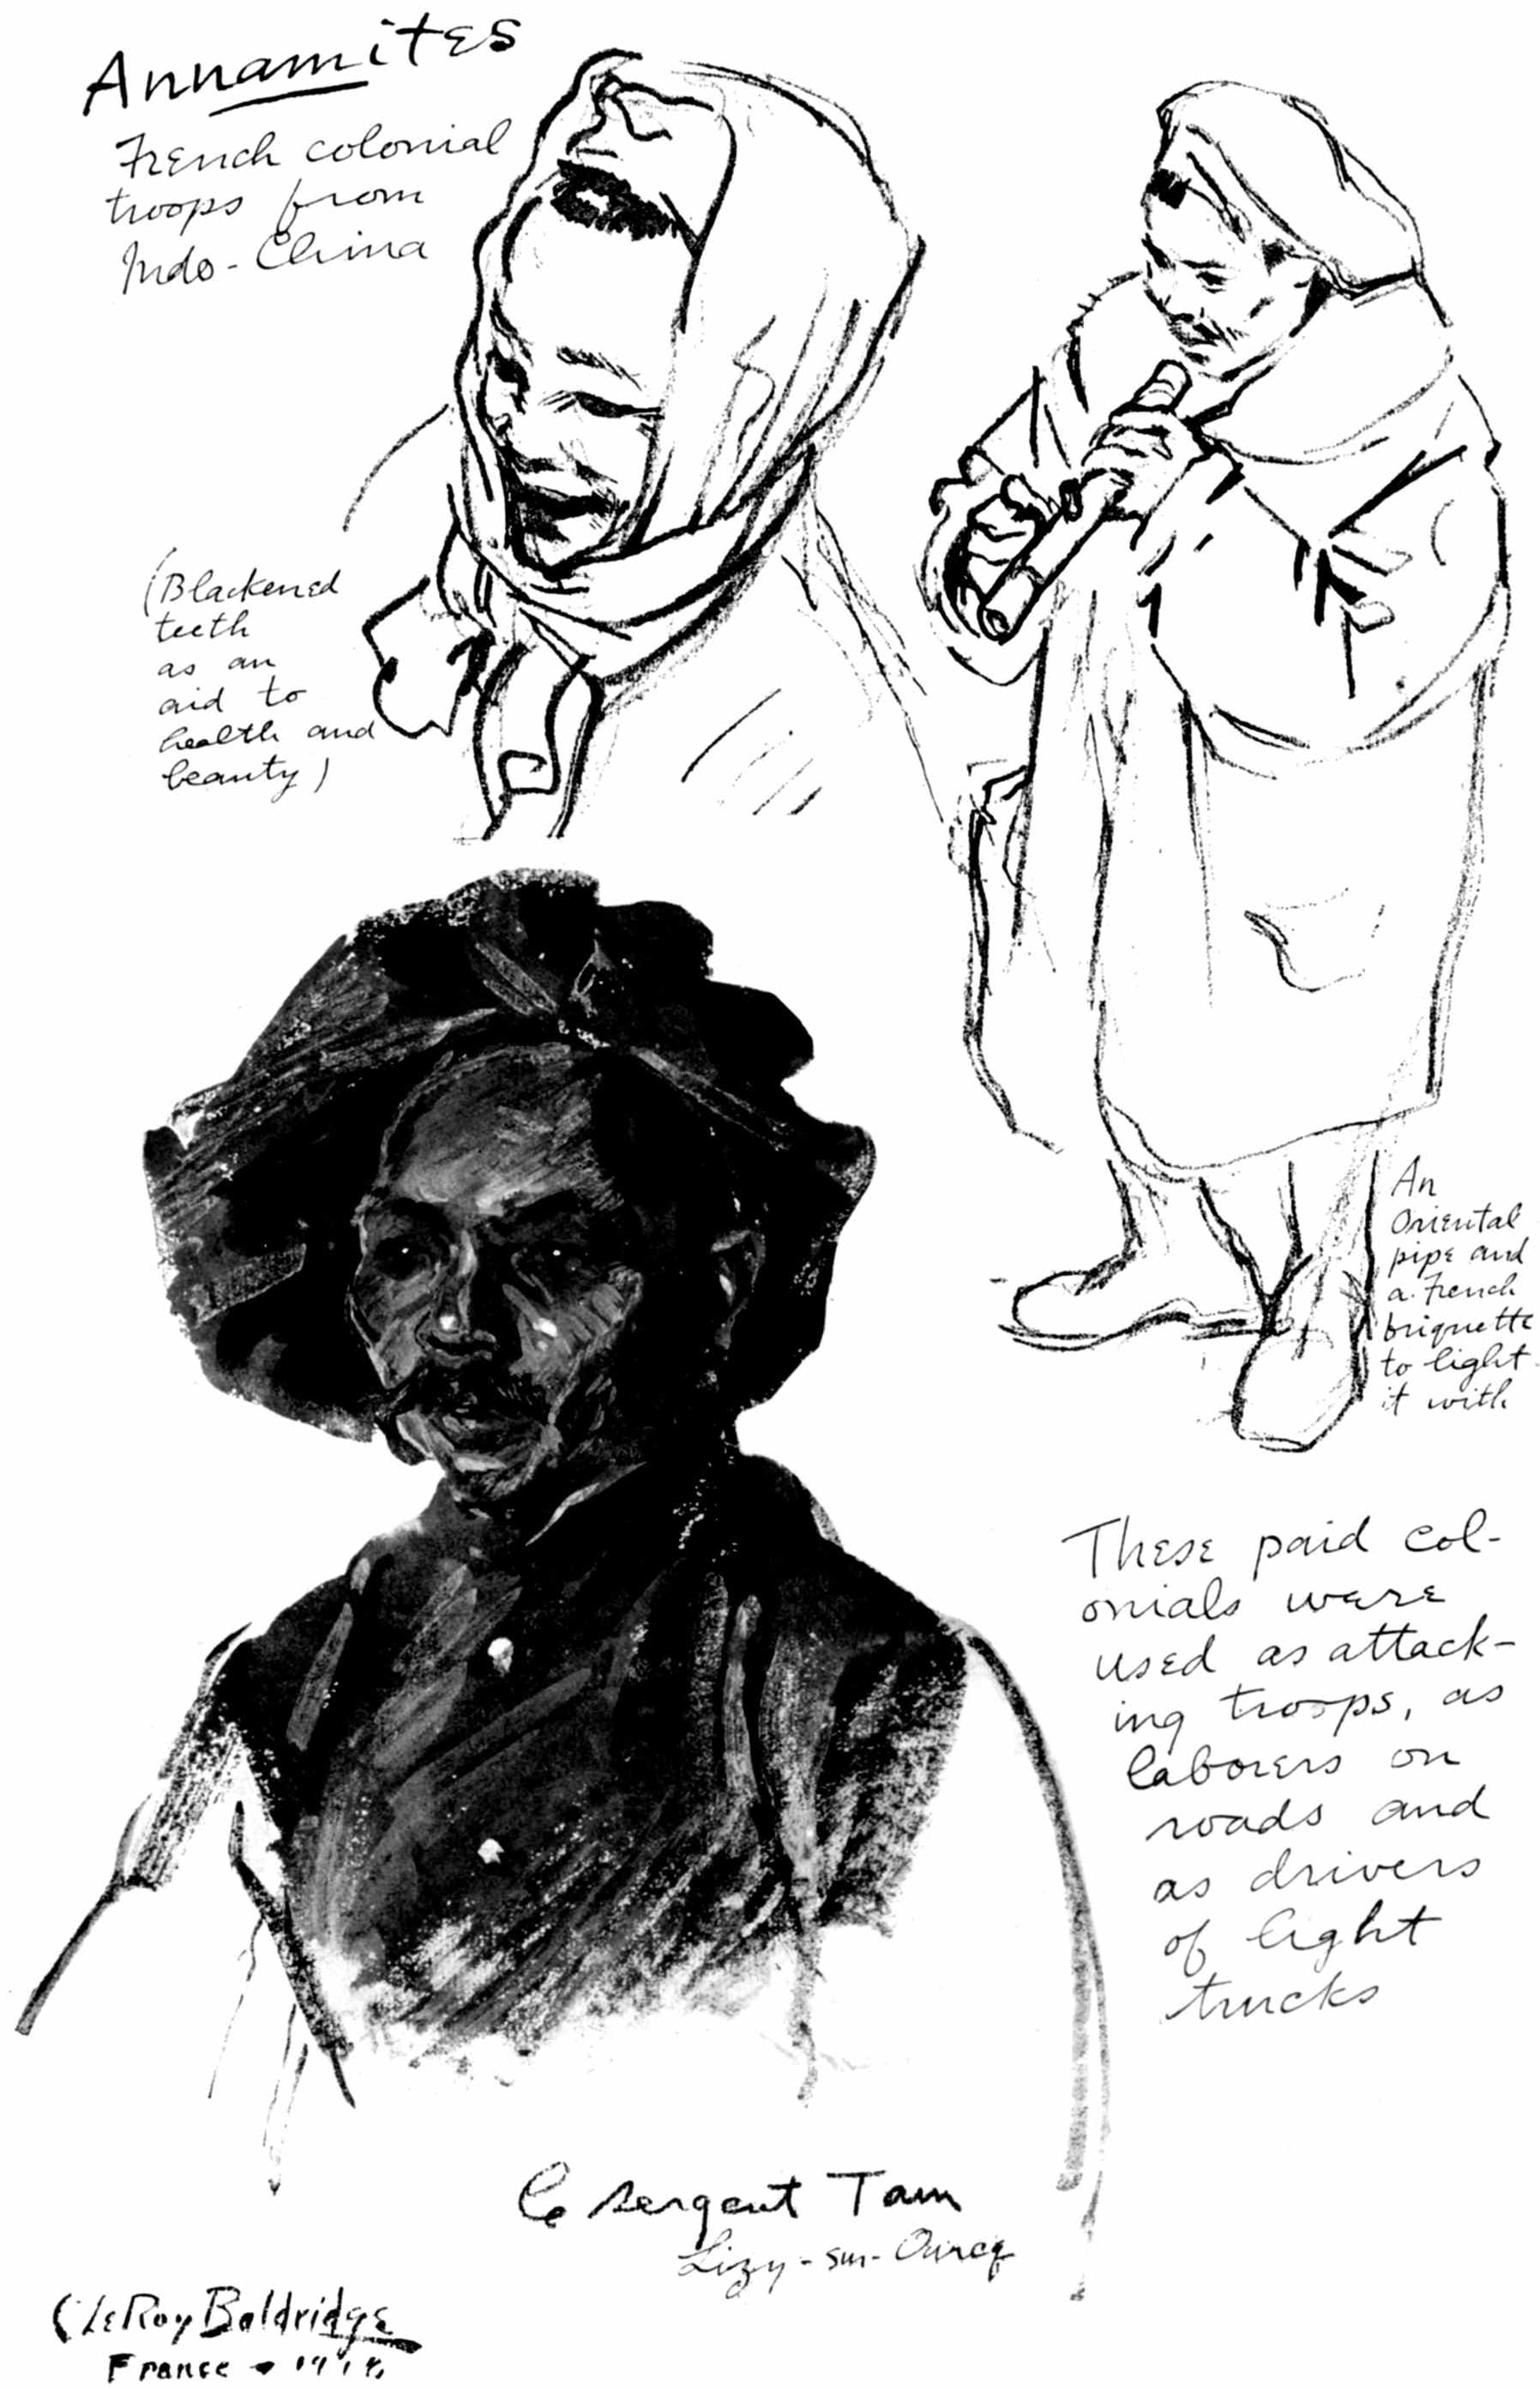 Annamites
French colonial
troops from
Indo-China
(Blackened
teeth
as an
aid to
health and
beauty)
An
Oriental
pipe and
a French
briquette
to light
it with
These paid col-
onials were
used as attack-
ing troops, as
laborers on
roads and
as drivers
of light
trucks
Le sergent Tam
Lizy-sur-Ourcq
C LeRoy Baldridge
France - 1918